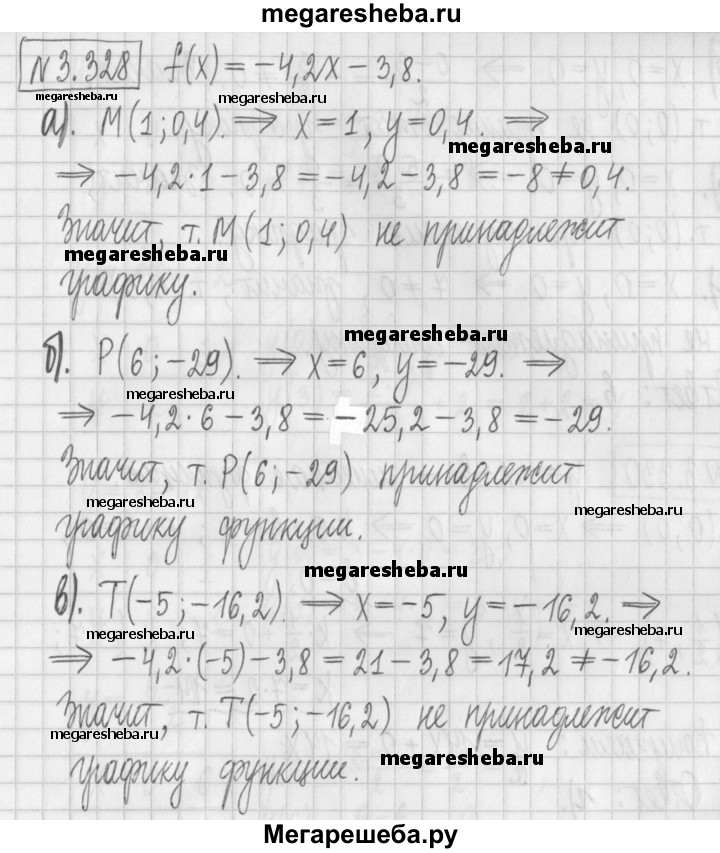 megaresheba.ru
№3.328 f(x) = -4,2x - 3,8.
megaresheba.ru megaresheba.ru
а). M(1; 0,4). ⟹ x=1, y=0,4. ⟹
megaresheba.ru
⟹ -4,2·1-3,8 = -4,2-3,8 = -8 ≠ 0,4.
Значит, т. M(1; 0,4) не принадлежит
megaresheba.ru
графику.
megaresheba.ru
б). P(6; -29). ⟹ x=6, y=-29. ⟹
megaresheba.ru megaresheba.ru
⟹ -4,2·6-3,8 = -25,2-3,8 = -29.
Значит, т. P(6; -29) принадлежит
megaresheba.ru megaresheba.ru
графику функции.
megaresheba.ru
в). T(-5; -16,2). ⟹ x=-5, y=-16,2. ⟹
megaresheba.ru megaresheba.ru
⟹ -4,2·(-5)-3,8 = 21-3,8 = 17,2 ≠ -16,2.
Значит, т. T(-5; -16,2) не принадлежит
megaresheba.ru megaresheba.ru
графику функции.
megaresheba.ru
Мегарешеба.ру